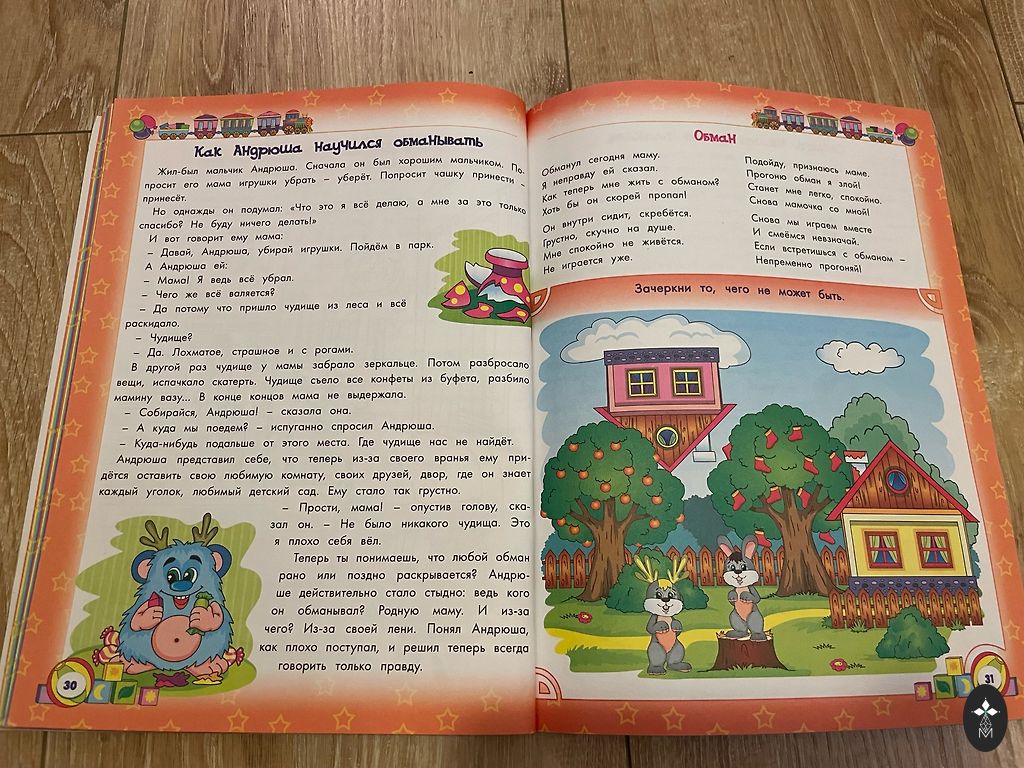 Как Андрюша научился обманывать
Жил-был мальчик Андрюша. Сначала он был хорошим мальчиком. По-
просит его мама игрушки убрать – уберёт. Попросит чашку принести –
принесёт.
Но однажды он подумал: «Что это я всё делаю, а мне за это только
спасибо? Не буду ничего делать!»
И вот говорит ему мама:
– Давай, Андрюша, убирай игрушки. Пойдём в парк.
А Андрюша ей:
– Мама! Я ведь всё убрал.
– Чего же всё валяется?
– Да потому что пришло чудище из леса и всё
раскидало.
– Чудище?
– Да. Лохматое, страшное и с рогами.
В другой раз чудище у мамы забрало зеркальце. Потом разбросало
вещи, испачкало скатерть. Чудище съело все конфеты из буфета, разбило
мамину вазу... В конце концов мама не выдержала.
– Собирайся, Андрюша! – сказала она.
– А куда мы поедем? – испуганно спросил Андрюша.
– Куда-нибудь подальше от этого места. Где чудище нас не найдёт.
Андрюша представил себе, что теперь из-за своего вранья ему при-
дётся оставить свою любимую комнату, своих друзей, двор, где он знает
каждый уголок, любимый детский сад. Ему стало так грустно.
– Прости, мама! – опустив голову, ска-
зал он. – Не было никакого чудища. Это
я плохо себя вёл.
Теперь ты понимаешь, что любой обман
рано или поздно раскрывается? Андрю-
ше действительно стало стыдно: ведь кого
он обманывал? Родную маму. И из-за
чего? Из-за своей лени. Понял Андрюша,
как плохо поступал, и решил теперь всегда
говорить только правду.
30
Обман
Обманул сегодня маму.
Я неправду ей сказал.
Как теперь мне жить с обманом?
Хоть бы он скорей пропал!
Он внутри сидит, скребётся.
Грустно, скучно на душе.
Мне спокойно не живётся.
Не играется уже.
Подойду, признаюсь маме.
Прогоню обман я злой!
Станет мне легко, спокойно.
Снова мамочка со мной!
Снова мы играем вместе
И смеёмся невзначай.
Если встретишься с обманом –
Непременно прогоняй!
Зачеркни то, чего не может быть.
31
М